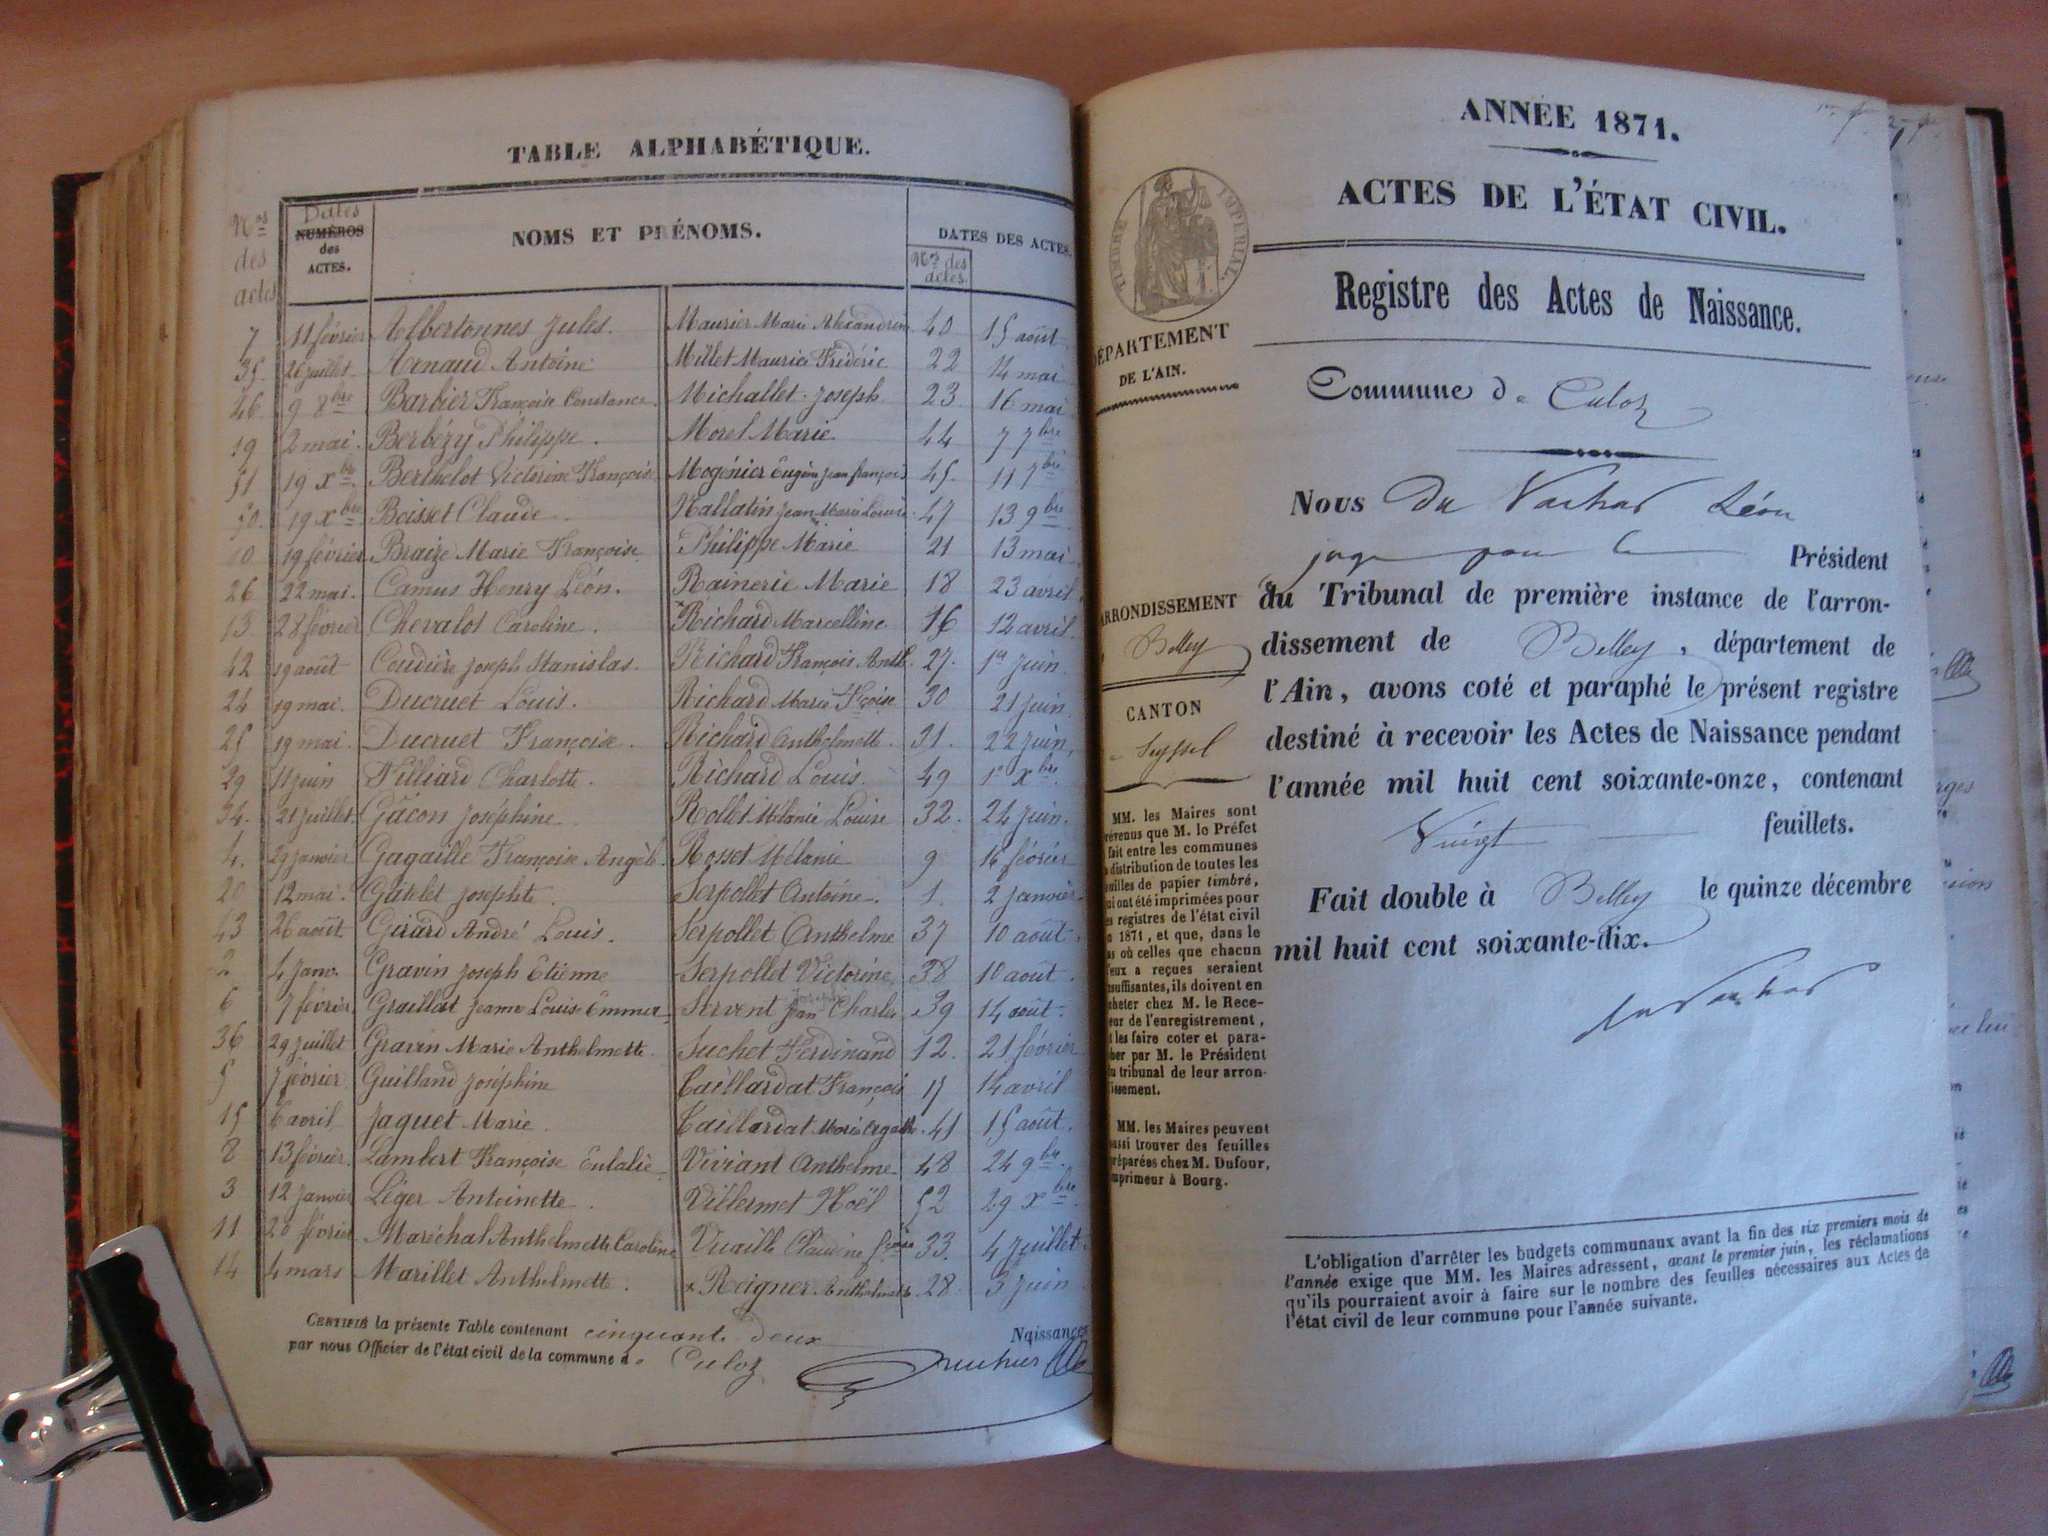 TABLE ALPHABÉTIQUE.
Nos des actes
Dates
NUMÉROS
des
ACTES.
NOMS ET PRÉNOMS.
DATES DES ACTES.
Nos des
actes
7 11 février Albertonnes Jules. Maurier Marie Alexandrine 40 15 août
35 26 juillet Arnaud Antoine Millet Maurice Frédéric 22 14 mai
46 9 8bre Barbier Françoise Constance. Michallet Joseph 23 16 mai
19 2 mai. Berbézy Philippe. Morel Marie 44 7 7bre
51 19 Xbre Berthelot Victorine Françoise Mogénier Eugène Jean François 45. 11 7bre
50. 19 Xbre Boisset Claude Nallatin Jean Marie Louis 47 13 9bre
10 19 février Braize Marie Françoise Philippe Marie 21 13 mai
26 22 mai. Camus Henry Léon. Rainerie Marie 18 23 avril
13 28 février Chevalot Caroline. Richard Marcelline 16 12 avril
42 19 août Coudière Joseph Stanislas. Richard François Anth. 27. 1er juin
24 19 mai. Ducruet Louis. Richard Marie Fçoise 30 21 juin
25 19 mai. Ducruet Françoise. Richard Anthelmette. 31. 22 juin
29 11 juin Filliard Charlotte. Richard Louis 49 1er Xbre
34. 21 juillet Gâcon Joséphine Rollet Mélanie Louise 32. 24 juin.
4. 29 janvier Gagaille Françoise Angèle Rosset Mélanie 9 16 février
20 12 mai. Gatelet Josephte. Serpollet Antoine. 1. 2 janvier
43 26 août Girard André Louis. Serpollet Anthelme 37 10 août
2 4 janv. Gravin Joseph Etienne Serpollet Victorine 38 10 août.
6 7 février Graillat Jeanne Louise Emma Servent Jean Joseph Charles 39 14 août
36 29 juillet Gravin Marie Anthelmette. Suchet Ferdinand 12. 21 février
5 7 février Guilland Joséphine Taillardat François 17 14 avril
15 6 avril Jaquet Marie. Taillardat Marie Agathe 41 15 août.
8 13 février. Lambert Françoise Eulalie Viviant Anthelme 48 24 9bre.
3 12 janvier Léger Antoinette. Villermet Noël 52 29 Xbre
11 20 février Maréchal Anthelmette Caroline Vuaille Claudine 33. 4 juillet
14 4 mars Marillet Anthelmette. x Reigner Anthelmette 28. 3 juin
CERTIFIÉ la présente Table contenant cinquante deux Naissances
par nous Officier de l'état civil de la commune de Culoz
ANNÉE 1871.
ACTES DE L'ÉTAT CIVIL.
TIMBRE IMPÉRIAL.
Registre des Actes de Naissance.
DÉPARTEMENT
DE L'AIN.
Commune de Culoz
Nous Du Vachat Léon
juge pour le Président
du Tribunal de première instance de l'arron-
dissement de Belley, département de
l'Ain, avons coté et paraphé le présent registre
destiné à recevoir les Actes de Naissance pendant
l'année mil huit cent soixante-onze, contenant
Vingt feuillets.
Fait double à Belley le quinze décembre
mil huit cent soixante-dix.
Du Vachat
ARRONDISSEMENT
Belley
CANTON
Seyssel
MM. les Maires sont
prévenus que M. le Préfet
fait entre les communes
distribution de toutes les
feuilles de papier timbré,
qui ont été imprimées pour
les registres de l'état civil
1871, et que, dans le
cas où celles que chacun
d'eux a reçues seraient
insuffisantes, ils doivent en
acheter chez M. le Rece-
veur de l'enregistrement,
et les faire coter et para-
pher par M. le Président
du tribunal de leur arron-
dissement.
MM. les Maires peuvent
aussi trouver des feuilles
préparées chez M. Dufour,
imprimeur à Bourg.
L'obligation d'arrêter les budgets communaux avant la fin des six premiers mois de
l'année exige que MM. les Maires adressent, avant le premier juin, les réclamations
qu'ils pourraient avoir à faire sur le nombre des feuilles nécessaires aux Actes de
l'état civil de leur commune pour l'année suivante.